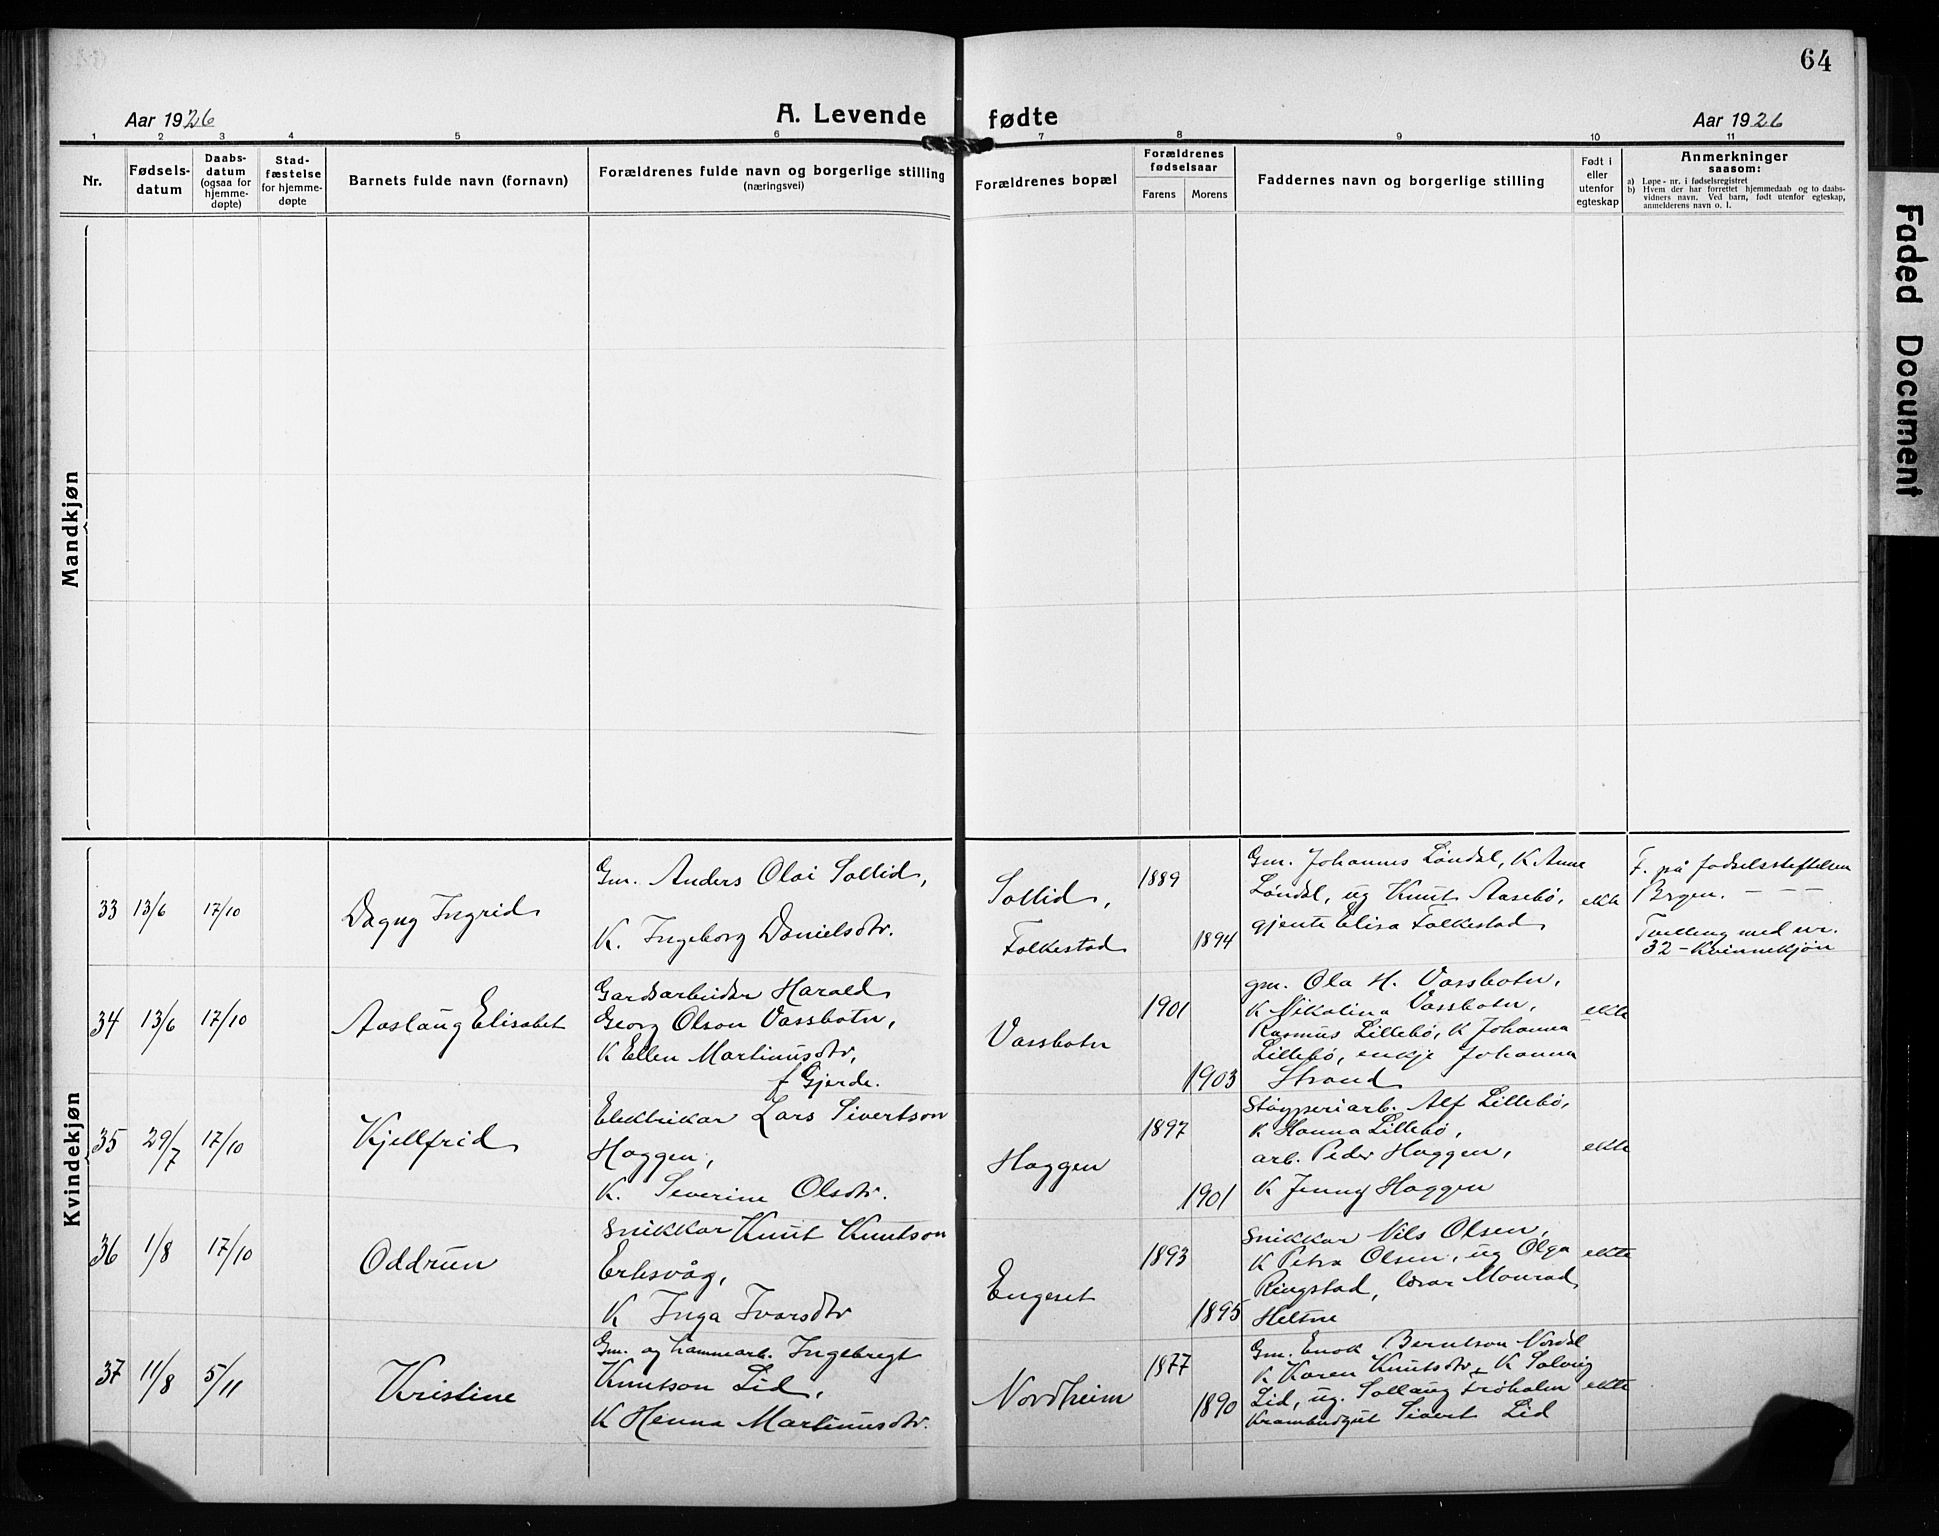 64
Aar 1926
A. Levende fødte
Aar 1926
1 2 3 4 5 6 7 8 9 10 11
Nr.
Fødsels-
datum
Daabs-
datum
(ogsaa for
hjemme-
døpte)
Stad-
fæstelse
for hjemme-
døpte
Barnets fulde navn (fornavn)
Forældrenes fulde navn og borgerlige stilling
(næringsvei)
Forældrenes bopæl
Forældrenes
fødselsaar
Farens Morens
Faddernes navn og borgerlige stilling
Født i
eller
utenfor
egteskap
Anmerkninger
saasom:
a) Løpe-nr. i fødselsregistret
b) Hvem der har forrettet hjemmedaab og to daabs-
vidners navn. Ved barn, født utenfor egteskap,
anmelderens navn o. l.
Faded Document
Mandkjøn
Kvindekjøn
33 13/6 17/10
Dagny Ingrid
Gm. Anders Olai Sollid,
K. Ingeborg Danielsdtr.
Sollid,
Folkestad
1889
1894
Gm. Johannes Løndal, K Anne
Løndal, ug Knut Aasebø,
gjente Elisa Folkestad
ekte
F. på fødselsstiftelsen
Brgen. — — —
Tvilling med nr.
32 - Kvinnekjøn
34 13/6 17/10
Aaslaug Elisabet
Gardsarbeider Harald
Georg Olson Vassbotn,
K Ellen Martinusdtr,
f Gjerde.
Vassbotn
1901
1903
gm. Ola H. Vassbotn,
K Nikolina Vassbotn,
Rasmus Lillebø, K Johanna
Lillebø, enkje Johanna
Strand
ekte
35 29/7 17/10
Kjellfrid
Elektrikar Lars Sivertson
Haggen,
K. Severine Olsdtr.
Haggen
1897
1901
Støyperiarb. Alf Lillebø,
K Hanna Lillebø,
arb. Peder Haggen,
K Jenny Haggen
ekte
36 1/8 17/10
Oddrun
Snikkar Knut Knutson
Erksvåg,
K Inga Ivarsdtr
Engeset
1893
1895
Snikkar Nils Olsen,
K Petra Olsen, ug Olga
Ringstad, lærar Monrad
Heltne
ekte
37 11/8 5/11
Kristine
Gm. og hammearb. Ingebregt
Knutson Lid,
K Henna Martinusdtr.
Nordheim
1877
1890
Gm. Enok Berntson Nordal
K Karen Knutsdtr, K Solveig
Lid, ug. Sollaug Frøholm
Krambudgut Sivert Lid
ekte